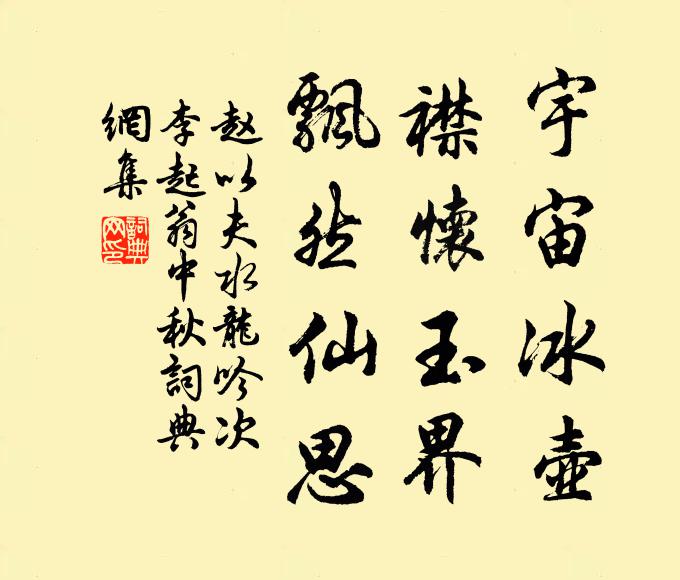 宇宙冰壺
襟懷玉界
飄然仙思
赵以夫水龍吟次
李起翁中秋詞典
網集
詞典網印